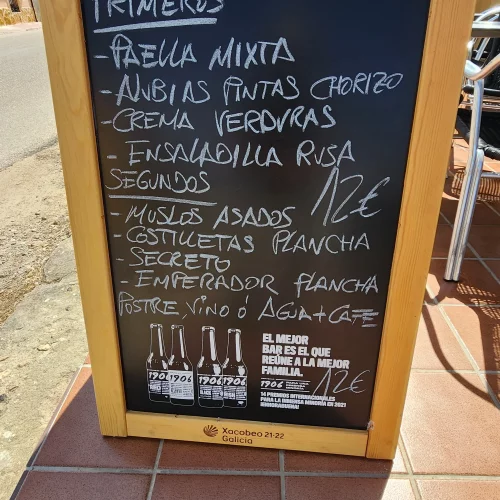 PRIMEROS
- PAELLA MIXTA
- ALUBIAS PINTAS CHORIZO
- CREMA VERDURAS
- ENSALADILLA RUSA
SEGUNDOS
12€
- MUSLOS ASADOS
- COSTILLETAS PLANCHA
- SECRETO
- EMPERADOR PLANCHA
POSTRE, VINO ó AGUA + CAFÉ
EL MEJOR
BAR ES EL QUE
REÚNE A LA MEJOR
FAMILIA.
1906
12€
14 PREMIOS INTERNACIONALES
PARA LA INMENSA MINORÍA EN 2021
1906 1906 1906 1906
Xacobeo 21·22
Galicia